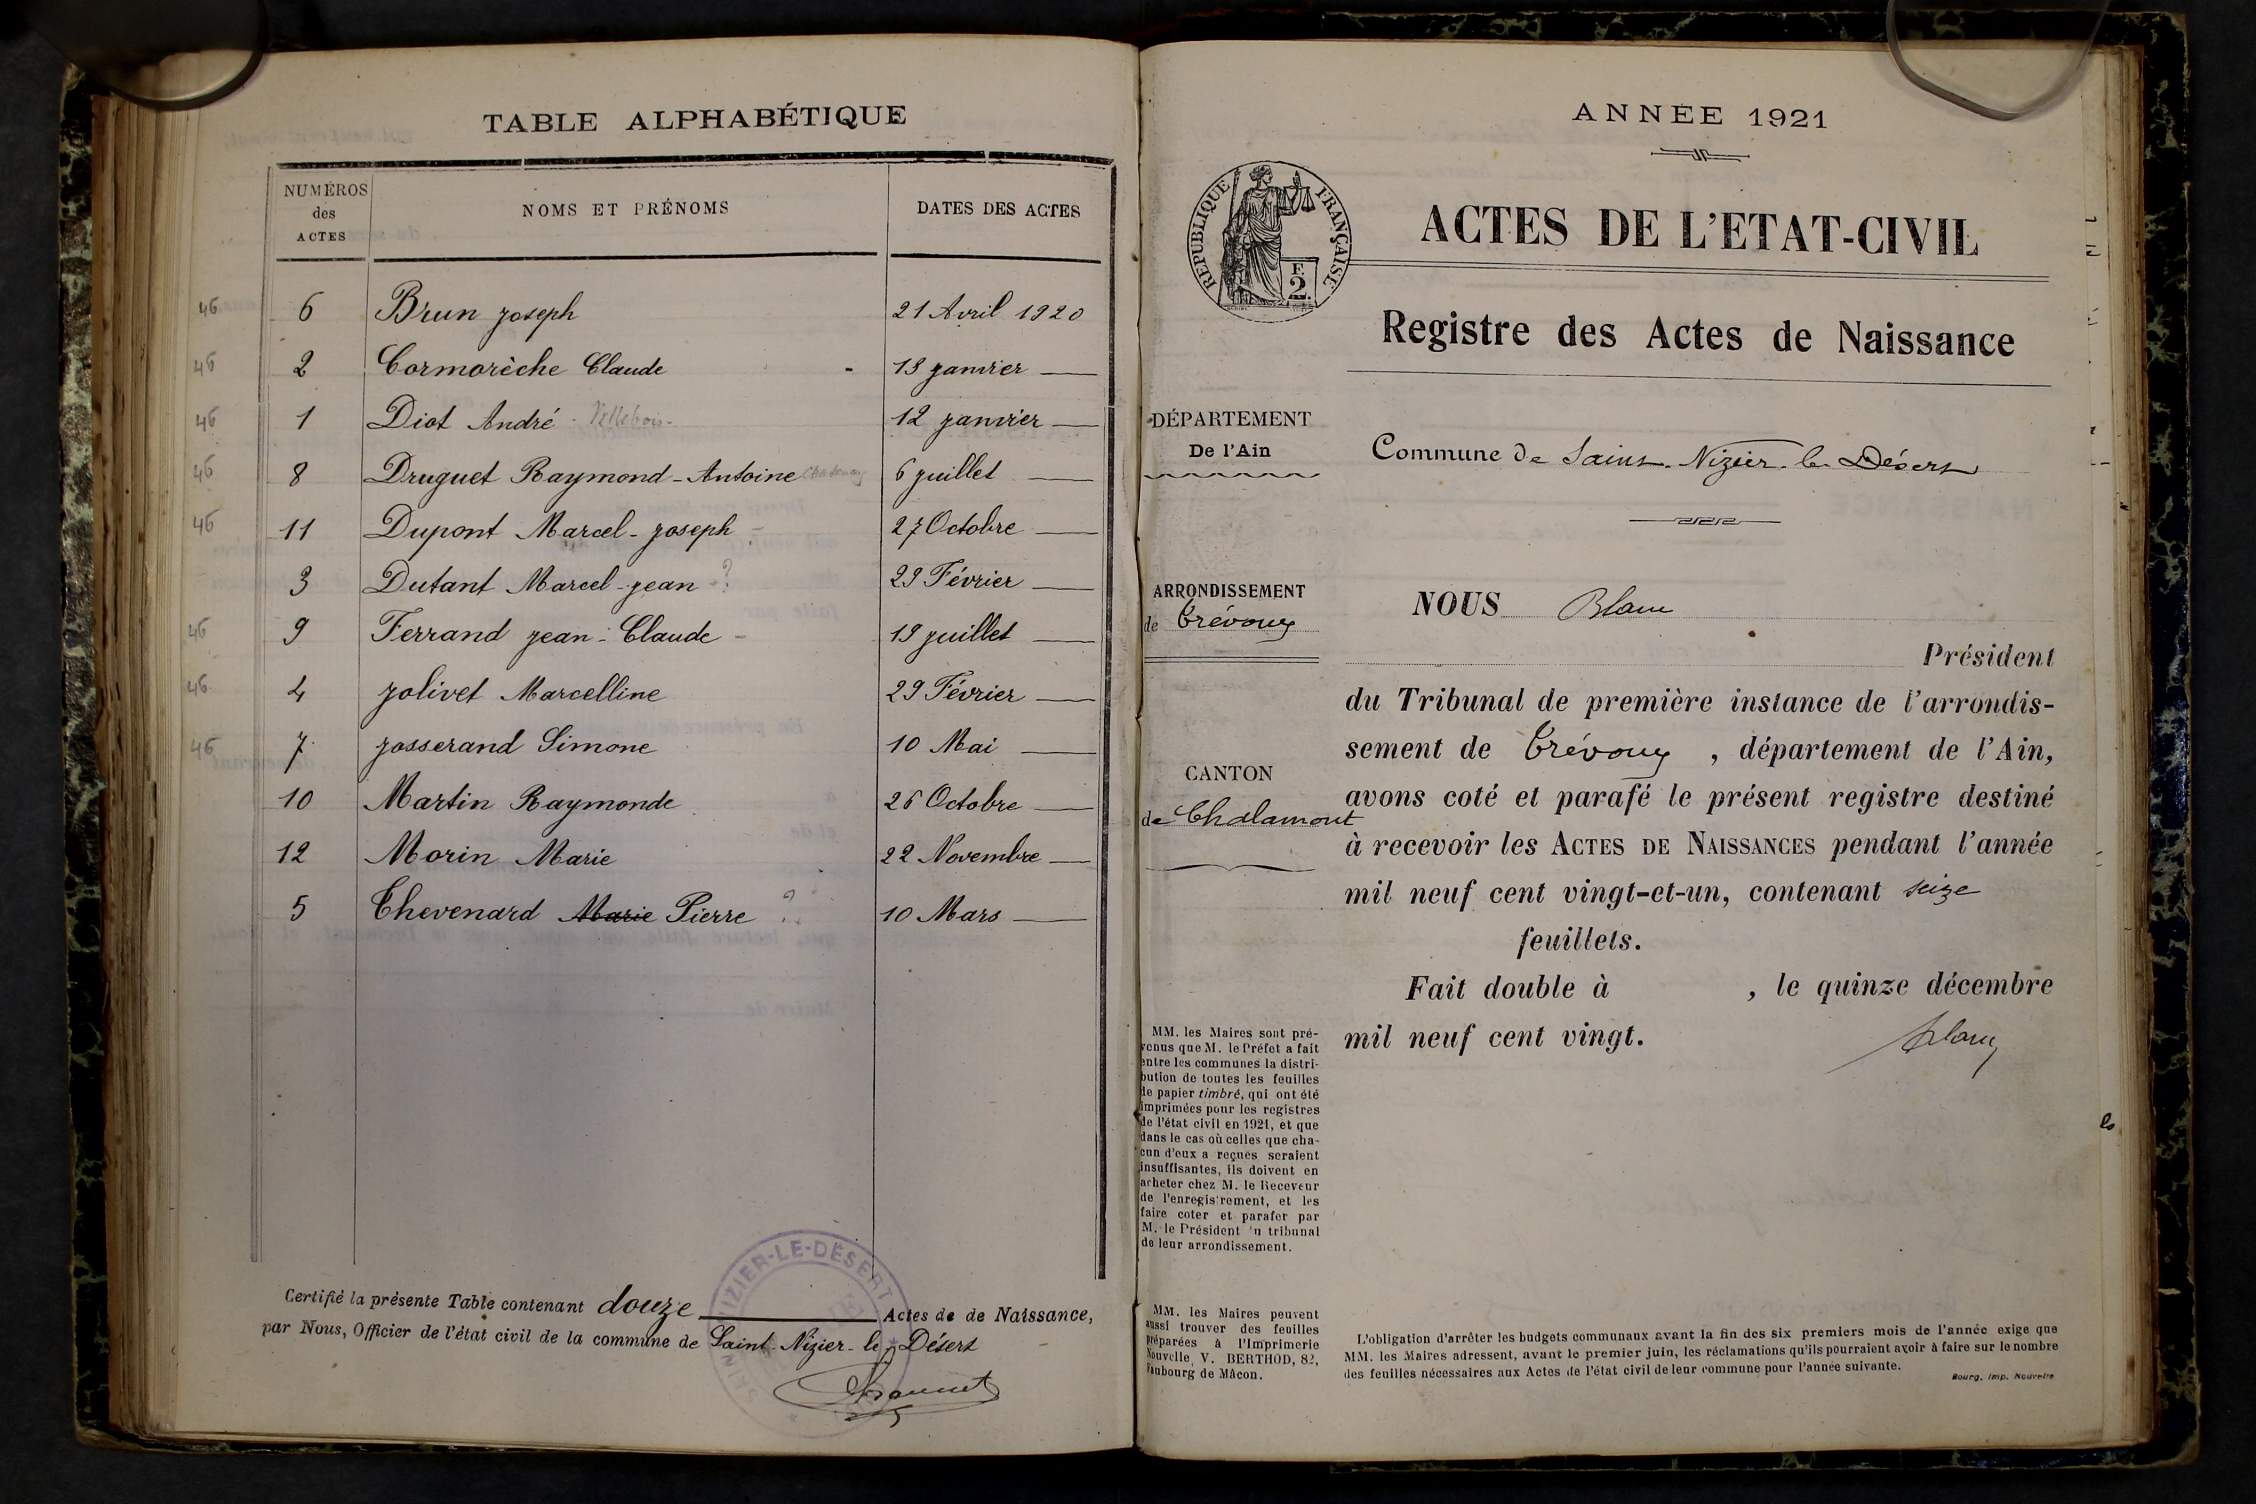 TABLE ALPHABÉTIQUE
NUMÉROS des ACTES
NOMS ET PRÉNOMS
DATES DES ACTES
46 6 Brun Joseph 21 Avril 1920
46 2 Cormorèche Claude - 13 Janvier —
46 1 Diot André - Villebois - 12 Janvier —
46 8 Druguet Raymond-Antoine 6 Juillet —
46 11 Dupont Marcel-Joseph - 27 Octobre —
3 Dutant Marcel-Jean ? 29 Février —
46 9 Ferrand Jean-Claude - 19 Juillet —
46 4 Jolivet Marcelline 29 Février —
46 7 Josserand Simone 10 Mai —
10 Martin Raymonde 26 Octobre —
12 Morin Marie 22 Novembre —
5 Thevenard Marie Pierre ? 10 Mars —
Certifié la présente Table contenant douze Actes de de Naissance,
par Nous, Officier de l'état civil de la commune de Saint-Nizier-le-Désert
NIZIER-LE-DÉSERT
ANNÉE 1921
RÉPUBLIQUE FRANÇAISE
F.
2.
ACTES DE L'ETAT-CIVIL
Registre des Actes de Naissance
DÉPARTEMENT
De l'Ain
Commune de Saint-Nizier-le-Désert
ARRONDISSEMENT
de Trévoux
CANTON
de Chalamont
NOUS Blanc
Président
du Tribunal de première instance de l'arrondis-
sement de Trévoux , département de l'Ain,
avons coté et parafé le présent registre destiné
à recevoir les ACTES DE NAISSANCES pendant l'année
mil neuf cent vingt-et-un, contenant seize
feuillets.
Fait double à , le quinze décembre
mil neuf cent vingt.
Blanc
MM. les Maires sont pré-
venus que M. le Préfet a fait
entre les communes la distri-
bution de toutes les feuilles
de papier timbré, qui ont été
imprimées pour les registres
de l'état civil en 1921, et que
dans le cas où celles que cha-
cun d'eux a reçues seraient
insuffisantes, ils doivent en
acheter chez M. le Receveur
de l'enregis'rement, et les
faire coter et parafer par
M. le Président 'u tribunal
de leur arrondissement.
MM. les Maires peuvent
aussi trouver des feuilles
préparées à l'Imprimerie
Nouvelle V. BERTHOD, 82,
Faubourg de Mâcon.
L'obligation d'arrêter les budgets communaux avant la fin des six premiers mois de l'année exige que
MM. les Maires adressent, avant le premier juin, les réclamations qu'ils pourraient avoir à faire sur le nombre
des feuilles nécessaires aux Actes de l'état civil de leur commune pour l'année suivante.
Bourg, Imp. Nouvelle